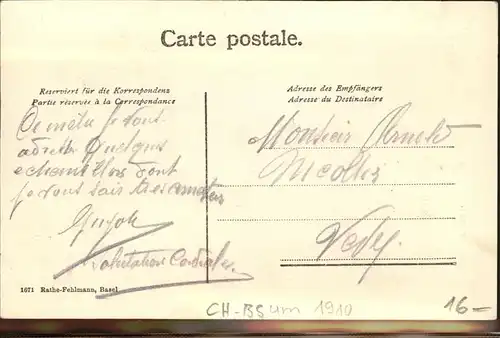 Carte postale.
Reserviert für die Korrespondenz
Partie réservée à la Correspondance
Adresse des Empfängers
Adresse du Destinataire
je vous
quelques
echantillons dont
je vous sais tres amateur
Salutations Cordiales
Monsieur Arnold
Nicollier
Vevey
1671 Rathe-Fehlmann, Basel
CH-BS um 1910
16=